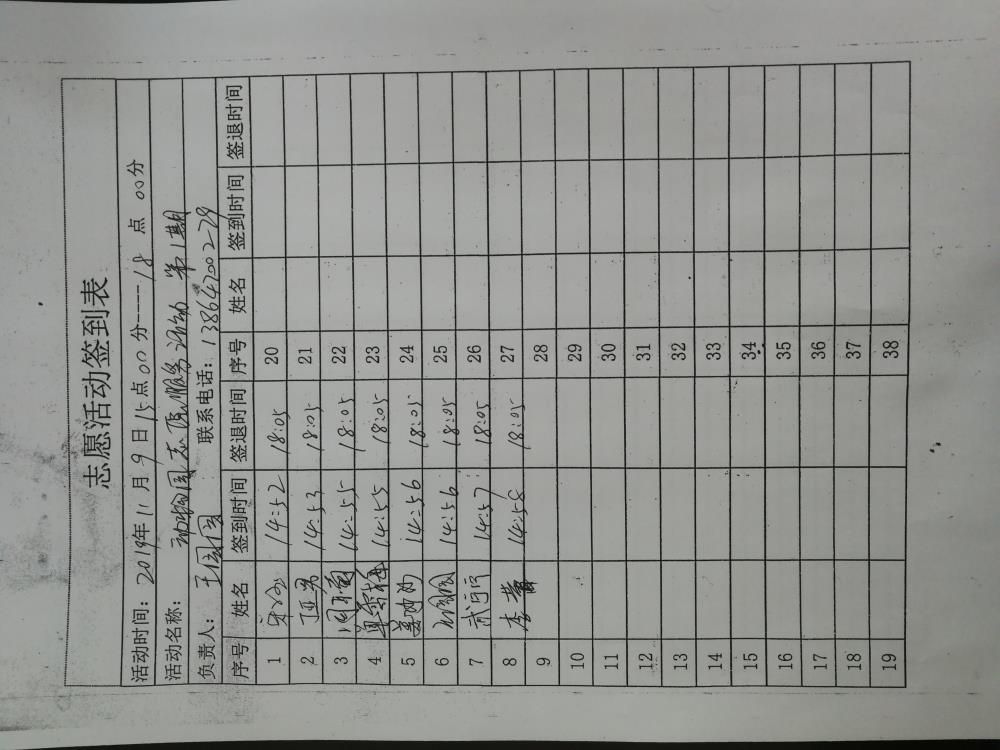 志愿活动签到表
活动时间：2019年11月9日15点00分----18点00分
活动名称：动物园志愿服务活动 第1期
负责人：王国 联系电话：13864700229
序号 姓名 签到时间 签退时间 序号 姓名 签到时间 签退时间
1 14:52 18:05 20
2 14:53 18:05 21
3 14:55 18:05 22
4 14:55 18:05 23
5 14:56 18:05 24
6 14:56 18:05 25
7 武宁宁 14:57 18:05 26
8 李蕾 14:58 18:05 27
9 28
10 29
11 30
12 31
13 32
14 33
15 34
16 35
17 36
18 37
19 38